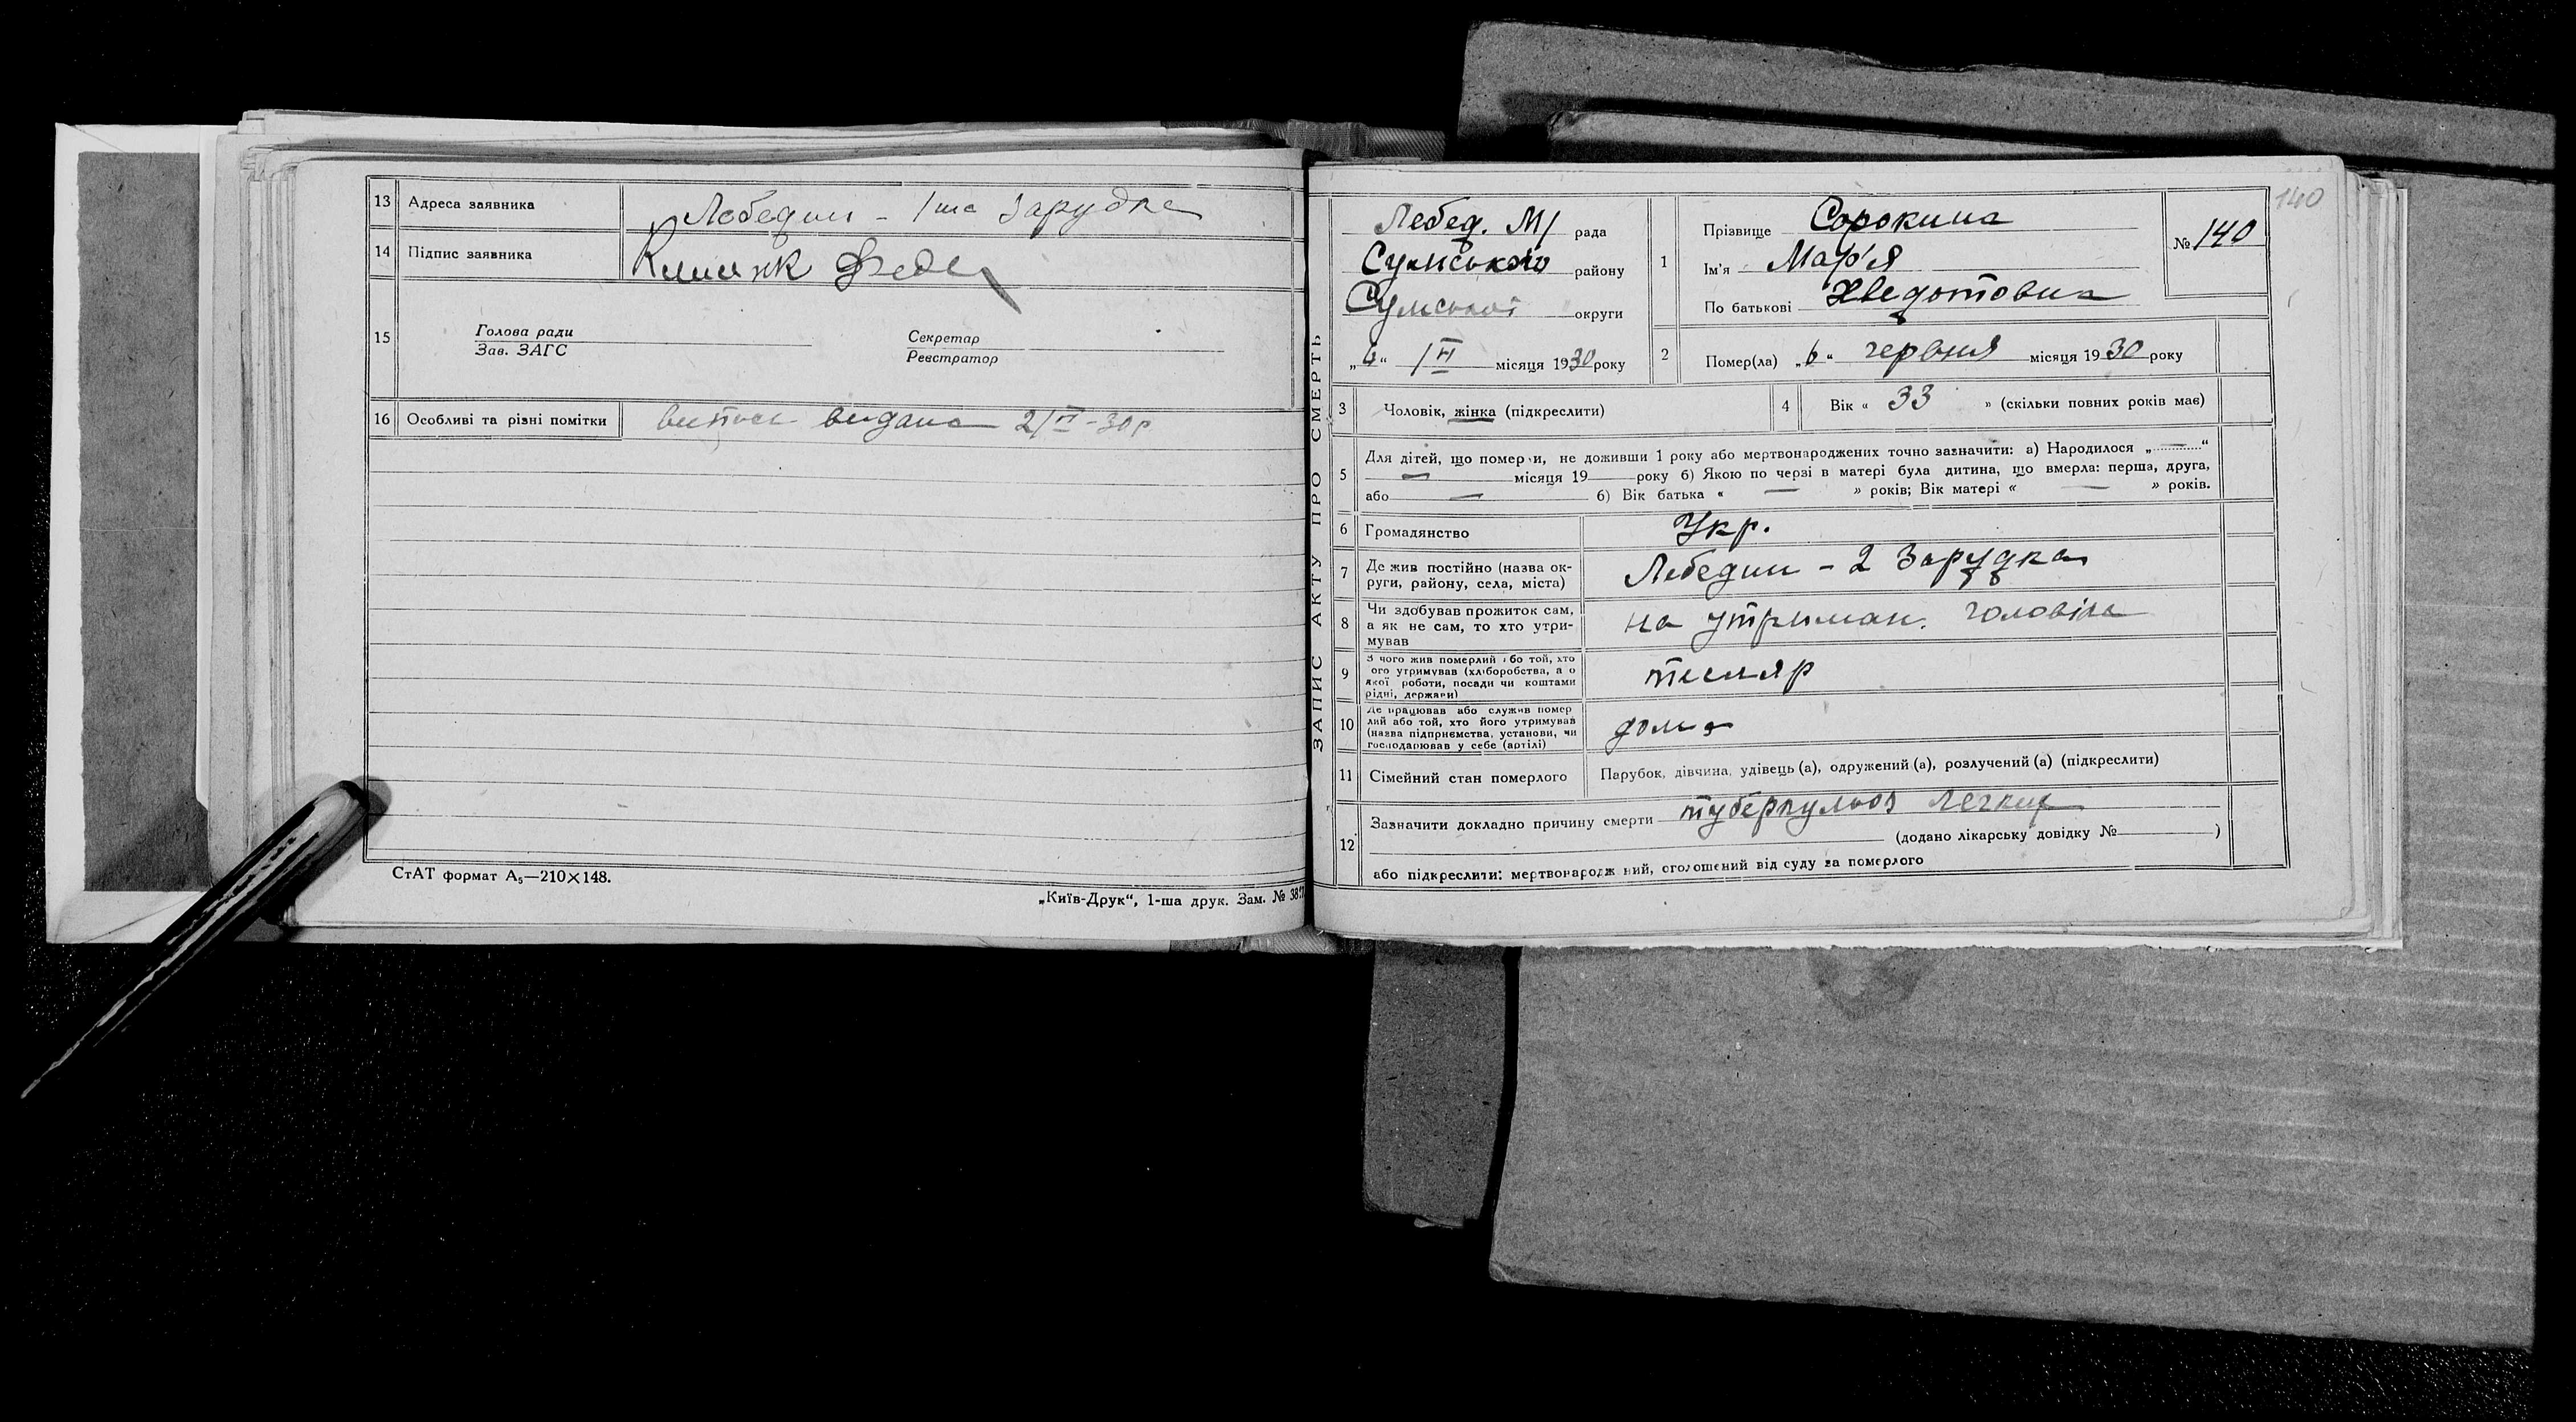 13 Адреса заявника Лебедин - 1ша Зарудка
14 Підпис заявника
15 Голова ради
Зав. ЗАГС
Секретар
Реєстратор
16 Особливі та різні помітки випись видана 2/VI-30р
СтАТ формат А₅—210×148.
„Київ-Друк“, 1-ша друк. Зам. №
140
ЗАПИС АКТУ ПРО СМЕРТЬ
Лебед. М/ рада
Сумського району
Сумської округи
„6“ місяця 1930 року
1 Прізвище Сорокина
Ім'я Мар'я
По батькові Хведотовна
№ 140
2 Помер(ла) „6“ червня місяця 1930 року
3 Чоловік, жінка (підкреслити)
4 Вік « 33 » (скільки повних років має)
5 Для дітей, що померли, не доживши 1 року або мертвонароджених точно зазначити: а) Народилося „—“
— місяця 19 — року б) Якою по черзі в матері була дитина, що вмерла: перша, друга,
або — б) Вік батька « — » років; Вік матері « — » років.
6 Громадянство Укр.
7 Де жив постійно (назва ок-
руги, району, села, міста) Лебедин - 2 Зарудка
8 Чи здобував прожиток сам,
а як не сам, то хто утри-
мував на утриман. чоловіка
9 З чого жив померлий або той, хто
його утримував (хліборобства, а о
якої роботи, посади чи коштами
рідні, держави) тесляр
10 Де працював або служив помер
лий або той, хто його утримував
(назва підприємства, установи, чи
господарював у себе (артілі) дома
11 Сімейний стан померлого Парубок, дівчина, удівець (а), одружений (а), розлучений (а) (підкреслити)
12 Зазначити докладно причину смерти туберкульоз легких
(додано лікарську довідку № — )
або підкреслити: мертвонароджений, оголошений від суду за померлого